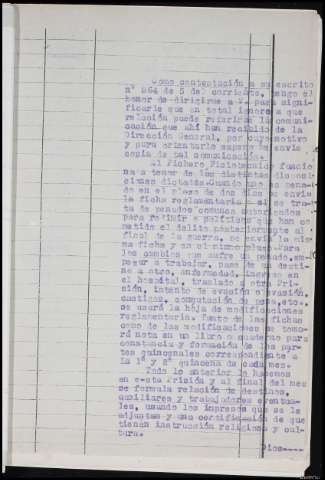 Como contestación a su escrito
nº 864 de 5 del corriente, tengo el
honor de dirigirme a V. para signi-
ficarle que en total ignoro a que
relación puede referirse la comuni-
cación que ahí han recibido de la
Dirección General, por cuyo motivo
y para orientarle supreme envio
copia de tal comunicación.
El Fichero Fisiotecnico funcio
na a tenor de las distintas disposi
ciones dictadas. Cuando uno es pena-
do en el plazo de dos dias se envia
la ficha reglamentaria si se tra-
ta de penados comunes autorizados
para redimir o politicos que han co
metido el delito posteriormente al
final de la guerra, se envia la mis
ma ficha y en el mismo plazo. Para
los cambios que sufre un penado, em-
pezar a trabajar, pase de un desti-
no a otro, enfermedad, ingreso en
el hospital, traslado a otra Pri-
sión, intento de evasión o evasión,
castigos, computación de pena, etc.
se usará la hoja de modificaciones
reglamentaria. Tanto de las fichas
como de las modificaciones se toma-
rá nota en un libro o cuaderno para
constancia y formación de los par-
tes quincenales correspondiente a
la 1ª y 2ª quincena de cada mes.
Todo lo anterior lo hacemos
en esta Prisión y al final del mes
se formula relación de destinos,
auxiliares y trabajadores eventua-
les, usando los impresos que se le
adjuntan y una certificación de que
tienen instrucción religiosa y cul-
tura.
Dios----